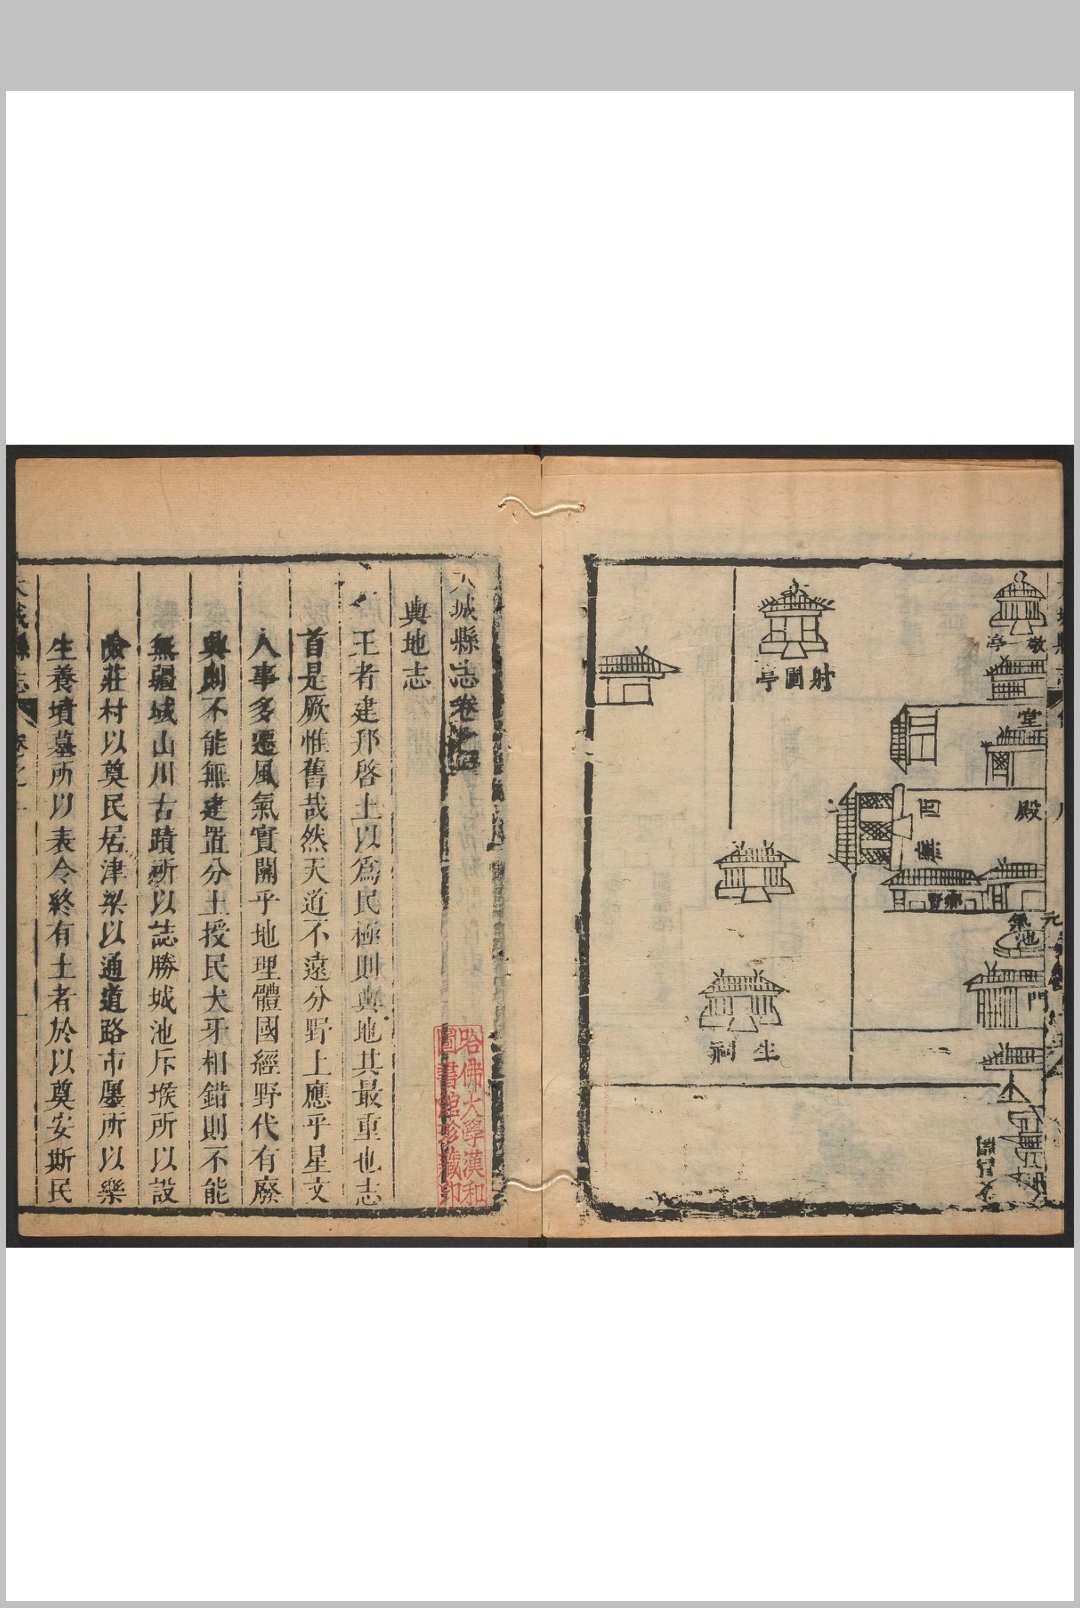 敬
亭
堂
殿
元
氣池
門
西廡
射圃亭
生祠
大城縣志卷之
輿地志
王者建邦啓土以爲民極則輿地其最重也志
首是厥惟舊哉然天道不遠分野上應乎星文
人事多遷風氣實關乎地理體國經野代有廢
興則不能無建置分土授民犬牙相錯則不能
無疆域山川古蹟所以誌勝城池斥堠所以設
險莊村以奠民居津梁以通道路市廛所以樂
生養墳墓所以表令終有土者於以奠安斯民
大城縣志
卷之一
哈佛大學漢和
圖書館珍藏印